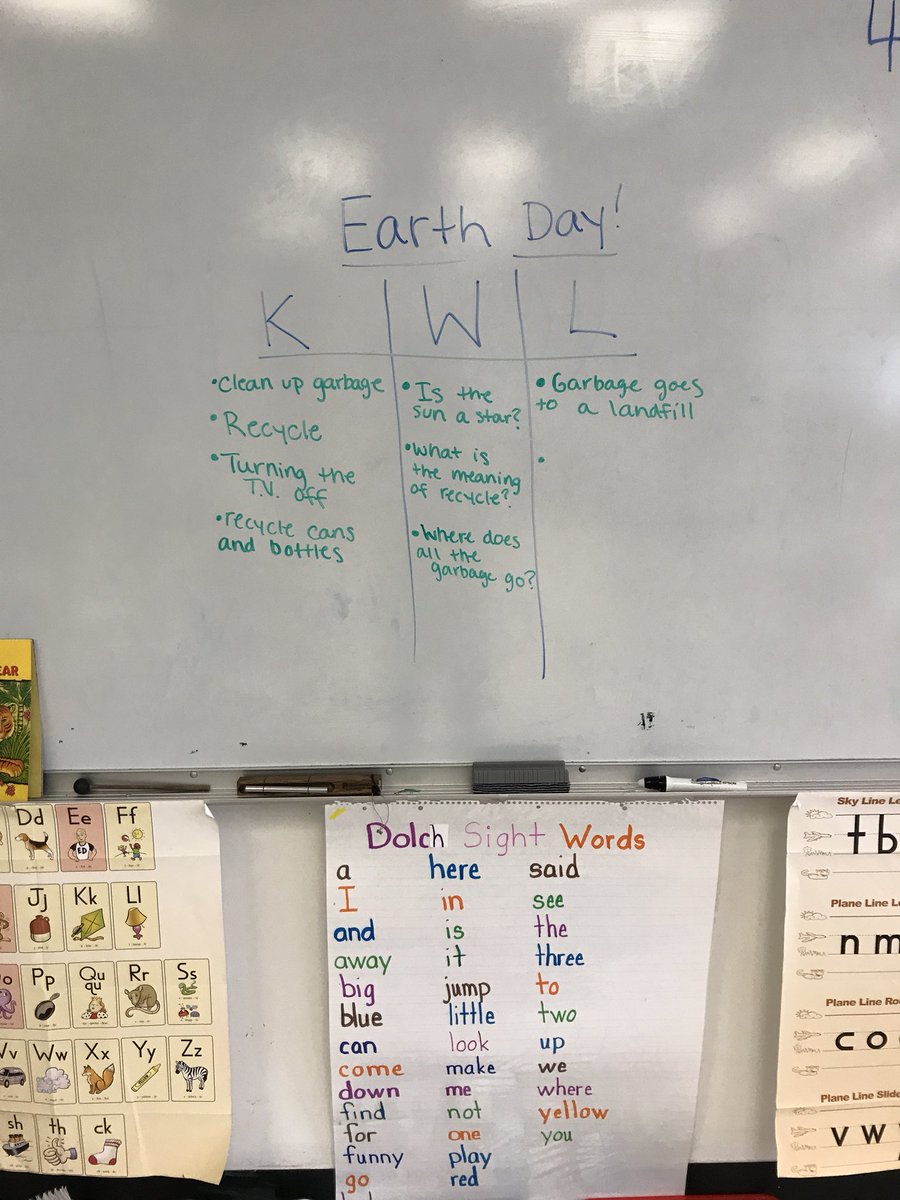 4
Earth Day!
K W L
•Clean up garbage
•Recycle
•Turning the
T.V. off
•recycle cans
and bottles
•Is the
sun a star?
•What is
the meaning
of recycle?
•Where does
all the
garbage go?
•Garbage goes
to a landfill
•
EAR
Dd Ee Ff
ED
Jj Kk Ll
Pp Qu qu Rr Ss
Vv Ww Xx Yy Zz
sh th ck
Dolch Sight Words
a here said
I in see
and is the
away it three
big jump to
blue little two
can look up
come make we
down me where
find not yellow
for one you
funny play
go red
Sky Line Le
t b
Plane Line Le
n m
Plane Line Ro
c o
Plane Line Slide
v w